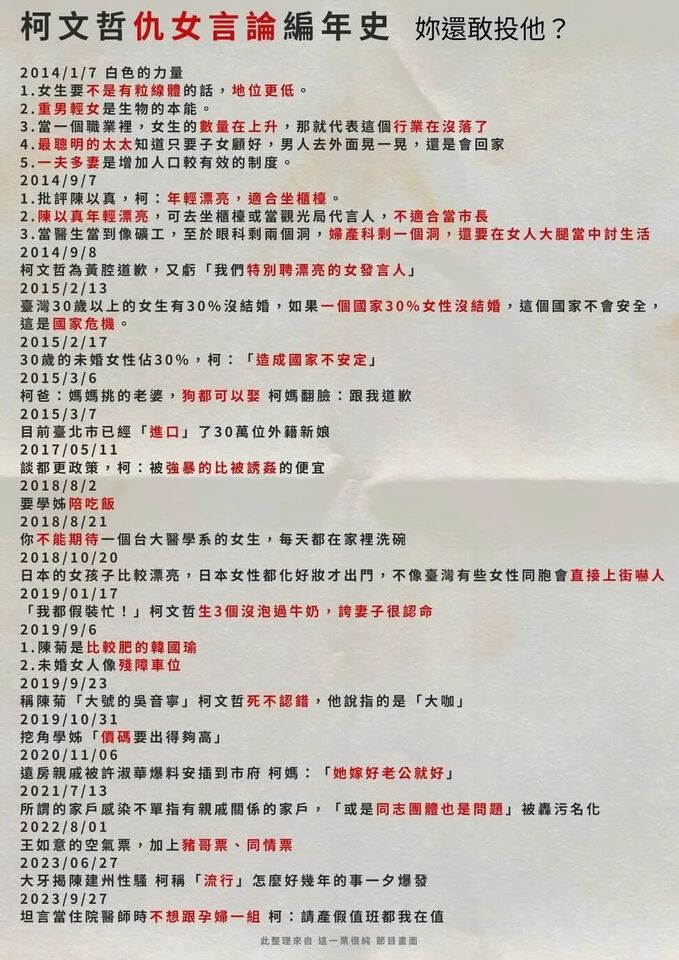 柯文哲仇女言論編年史 妳還敢投他？
2014/1/7 白色的力量
1.女生要不是有粒線體的話，地位更低。
2.重男輕女是生物的本能。
3.當一個職業裡，女生的數量在上升，那就代表這個行業在沒落了
4.最聰明的太太知道只要子女顧好，男人去外面晃一晃，還是會回家
5.一夫多妻是增加人口較有效的制度。
2014/9/7
1.批評陳以真，柯：年輕漂亮，適合坐櫃檯。
2.陳以真年輕漂亮，可去坐櫃檯或當觀光局代言人，不適合當市長
3.當醫生當到像礦工，至於眼科剩兩個洞，婦產科剩一個洞，還要在女人大腿當中討生活
2014/9/8
柯文哲為黃腔道歉，又虧「我們特別聘漂亮的女發言人」
2015/2/13
臺灣30歲以上的女生有30%沒結婚，如果一個國家30%女性沒結婚，這個國家不會安全，
這是國家危機。
2015/2/17
30歲的未婚女性佔30%，柯：「造成國家不安定」
2015/3/6
柯爸：媽媽挑的老婆，狗都可以娶 柯媽翻臉：跟我道歉
2015/3/7
目前臺北市已經「進口」了30萬位外籍新娘
2017/05/11
談都更政策，柯：被強暴的比被誘姦的便宜
2018/8/2
要學姊陪吃飯
2018/8/21
你不能期待一個台大醫學系的女生，每天都在家裡洗碗
2018/10/20
日本的女孩子比較漂亮，日本女性都化好妝才出門，不像臺灣有些女性同胞會直接上街嚇人
2019/01/17
「我都假裝忙！」柯文哲生3個沒泡過牛奶，誇妻子很認命
2019/9/6
1.陳菊是比較肥的韓國瑜
2.未婚女人像殘障車位
2019/9/23
稱陳菊「大號的吳音寧」柯文哲死不認錯，他說指的是「大咖」
2019/10/31
挖角學姊「價碼要出得夠高」
2020/11/06
遠房親戚被許淑華爆料安插到市府 柯媽：「她嫁好老公就好」
2021/7/13
所謂的家戶感染不單指有親戚關係的家戶，「或是同志團體也是問題」被轟污名化
2022/8/01
王如意的空氣票，加上豬哥票、同情票
2023/06/27
大牙揭陳建州性騷 柯稱「流行」怎麼好幾年的事一夕爆發
2023/9/27
坦言當住院醫師時不想跟孕婦一組 柯：請產假值班都我在值
此整理來自 這一票很純 節目畫面